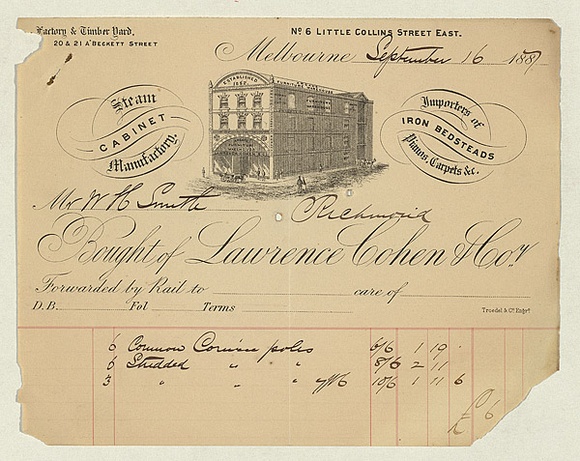 Factory & Timber Yard.
20 & 21 A'BECKETT STREET
No 6 LITTLE COLLINS STREET EAST.
Melbourne September 16 1887
ESTABLISHED
FURNITURE WAREHOUSE
Steam
CABINET
Manufactory.
Importers of
IRON BEDSTEADS
Pianos, Carpets &c.
Mr W H Smith Richmond
Bought of Lawrence Cohen & Coy
Forwarded by Rail to care of
D.B. Fol Terms
Troedel & Co Engrs
6 Common Cornice poles 6/6 1 19 .
6 Studded " " 8/6 2 11
3 " " " 10/6 1 11 6
6